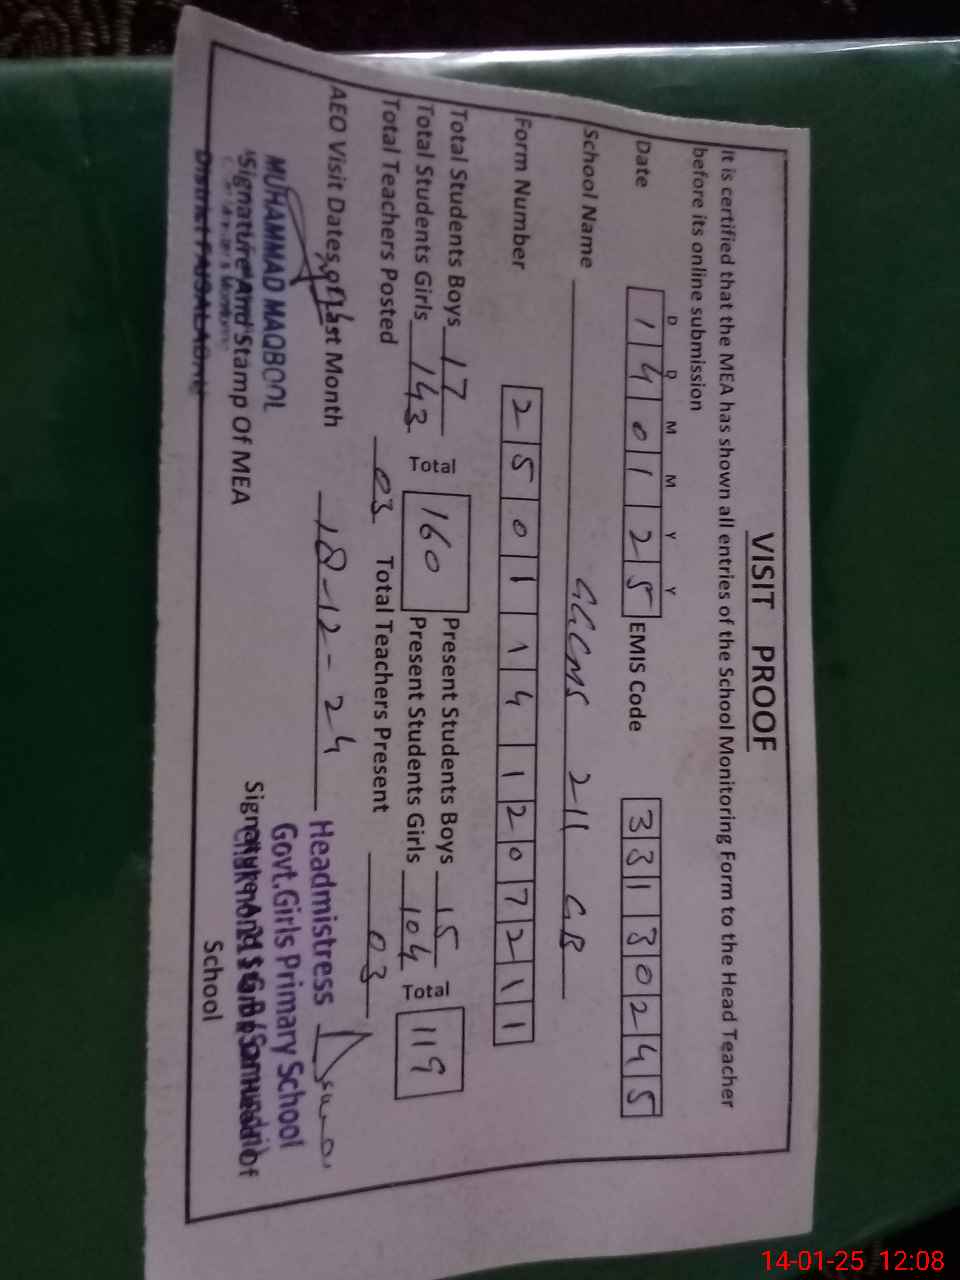 VISIT PROOF
It is certified that the MEA has shown all entries of the School Monitoring Form to the Head Teacher
before its online submission
D D M M Y Y
Date 1 4 0 1 2 5 EMIS Code 3 3 1 3 0 2 4 5
School Name GGCMS 211 GB
Form Number 2 5 0 1 1 4 1 2 0 7 2 1 1
Total Students Boys 17 Total 160 Present Students Boys 15 Total 119
Total Students Girls 143 Present Students Girls 104
Total Teachers Posted 03 Total Teachers Present 03
AEO Visit Dates of last Month 18-12-24
MUHAMMAD MAQBOOL
Signature And Stamp Of MEA
District FAISALABAD
Headmistress
Govt.Girls Primary School
Signature And Stamp Of
School
14-01-25 12:08